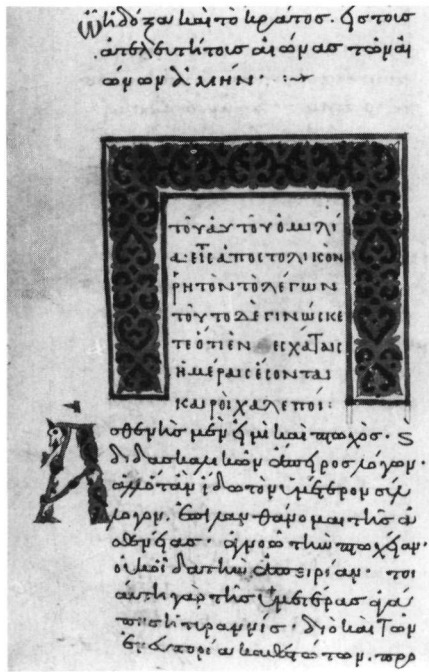 ᾧ ἡ δόξα καὶ τὸ κράτος. εἰς τοὺς
ἀτελευτήτους αἰῶνας τῶν αἰ
ώνων ἀμήν·
τοῦ αὐτοῦ ὁμιλί
α εἰς ἀποστολικὸν
ῥητὸν τὸ λέγων
τοῦτο δὲ γινώσκε
τε ὅτι ἐν ἐσχάταις
ἡμέραις ἔσονται
καιροὶ χαλεποί:
Ἀσθενὴς μὲν εἰμὶ καὶ πτωχὸς· ϗ
διδασκαλικῶν ἄπειρος λόγων·
ἀλλ' ὅταν ἴδω τὸν ὑμέτερον σύλ
λογον. ἐπιλανθάνομαι τῆς ἀ
σθενείας· ἀγνοῶ τὴν πτωχείαν·
οὐκ οἶδα τὴν ἀπειρίαν· τοι
αύτη γὰρ τῆς ὑμετέρας ἀγά
πης ἡ τυραννίς· διὸ καὶ τῶν
ἐν εὐπορία καθεστώτων. προ